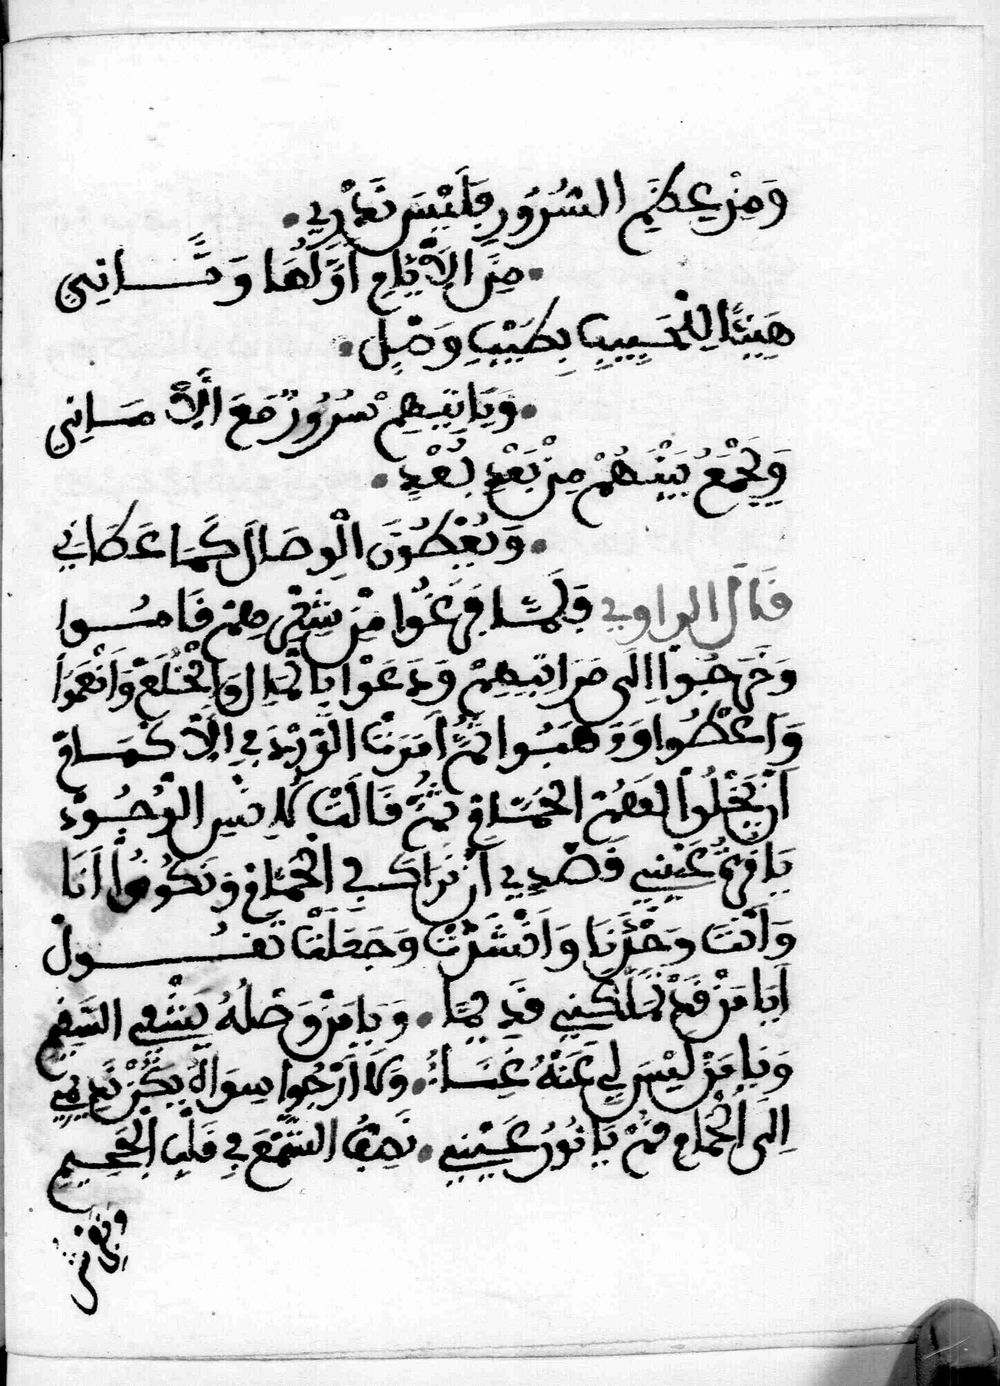 وَمِنْ عِظَمِ السُّرُورِ فَلَيْسَ نَدْرِي.
.مِنَ الْأَيَّامِ أَوَّلُهَا وَثَانِي
هَنِيئًا لِلْحَبِيبِ بِطِيبِ وَصْلٍ.
.وَيَاتِيهِمْ سُرُورٌ مَعَ الْأَمَانِي
وَيَجْمَعُ بَيْنَهُمْ مِنْ بَعْدِ بُعْدٍ.
.وَيُعْطُونَ الْوِصَالَ كَمَا عَطَانِي
قال الراوي وَلَمَّا فَرَغُوا مِنْ شِعْرِهِمْ قَامُوا
وَخَرَجُوا إِلَى مَرَاتِبِهِمْ وَدَعَوْا بِالْمَالِ وَالْخُلَعْ وَأَنْعَمُوا
وَأَعْطُوا وَوَهَبُوا ثُمَّ أَمَرَتْ الْوَرْدَ فِي الْأَكْمَامْ
أَنْ يُخْلُوا لَهُمْ الْحَمَّامْ ثُمَّ قَالَتْ لِأُنْسِ الْوُجُودْ
يَا قُرَّةَ عَيْنِي قَصْدِي أَنْ نَرَاكَ فِي الْحَمَّامْ وَنَكُونُوا أَنَا
وَأَنْتَ وَحْدَنَا وَانْشَدَتْ وَجَعَلَتْ تَقُولْ
أَيَا مَنْ قَدْ تَمَلَّكَنِي قَدِيمًا. وَيَا مَنْ وَصْلُهُ يَشْفِي السَّقِيمِ
وَيَا مَنْ لَيْسَ لِي عَنْهُ غَنَاءٌ. وَلَا أَرْجُوا سِوَاهُ يَكُنْ نَدِيمِي
إِلَى الْحَمَّامِ قُمْ يَا نُورُ عَيْنِي. نَصِفُ الشَّمْعَ فِي قَلْبِ الْجَحِيمِ